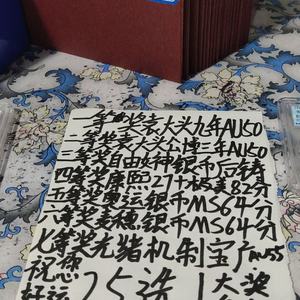 一等奖袁大头九年AU50
二等奖袁大头公博三年AU50
三等奖自由女神银币后铸
四等奖康熙27+极美82分
五等奖 银币MS64分
六等奖麦穗银币MS64分
七等奖光绪机制宝广AU55
祝您
好运
25选1大奖